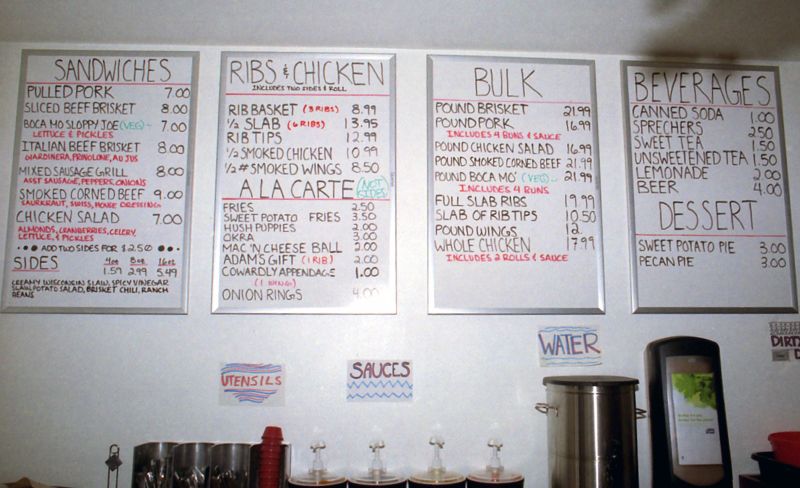 SANDWICHES
PULLED PORK 7.00
SLICED BEEF BRISKET 8.00
BOCA MO SLOPPY JOE (VEG) - 7.00
LETTUCE & PICKLES
ITALIAN BEEF BRISKET 8.00
GIARDINERA, PROVOLONE, AU JUS
MIXED SAUSAGE GRILL 8.00
ASST SAUSAGE, PEPPERS, ONIONS
SMOKED CORNED BEEF 9.00
SAURKRAUT, SWISS, DRESSING
CHICKEN SALAD 7.00
ALMONDS, CRANBERRIES, CELERY, LETTUCE, & PICKLES
ADD TWO SIDES FOR $2.50
SIDES 4oz 8oz 16oz
1.59 2.99 5.49
CREAMY WISCONSIN SLAW, SPICY VINEGAR
SLAW, POTATO SALAD, BRISKET CHILI, RANCH
BEANS
RIBS & CHICKEN
INCLUDES TWO SIDES & ROLL
RIB BASKET (3 RIBS) 8.99
1/2 SLAB (6 RIBS) 13.95
RIB TIPS 12.99
1/2 SMOKED CHICKEN 10.99
1/2 # SMOKED WINGS 8.50
A LA CARTE (NOT SIDES)
FRIES 2.50
SWEET POTATO FRIES 3.50
HUSH PUPPIES 2.00
OKRA 3.00
MAC 'N CHEESE BALL 2.00
ADAMS GIFT (1 RIB) 2.00
COWARDLY APPENDAGE 1.00
(1 WING)
ONION RINGS 4.00
BULK
POUND BRISKET 21.99
POUND PORK 16.99
INCLUDES 4 BUNS & SAUCE
POUND CHICKEN SALAD 16.99
POUND SMOKED CORNED BEEF 21.99
POUND BOCA MO' (VEG) - 21.99
INCLUDES 4 BUNS
FULL SLAB RIBS 19.99
SLAB OF RIB TIPS 10.50
POUND WINGS 12.
WHOLE CHICKEN 17.99
INCLUDES 2 ROLLS & SAUCE
BEVERAGES
CANNED SODA 1.00
SPRECHERS 2.50
SWEET TEA 1.50
UNSWEETENED TEA 1.50
LEMONADE 2.00
BEER 4.00
DESSERT
SWEET POTATO PIE 3.00
PECAN PIE 3.00
UTENSILS
SAUCES
WATER